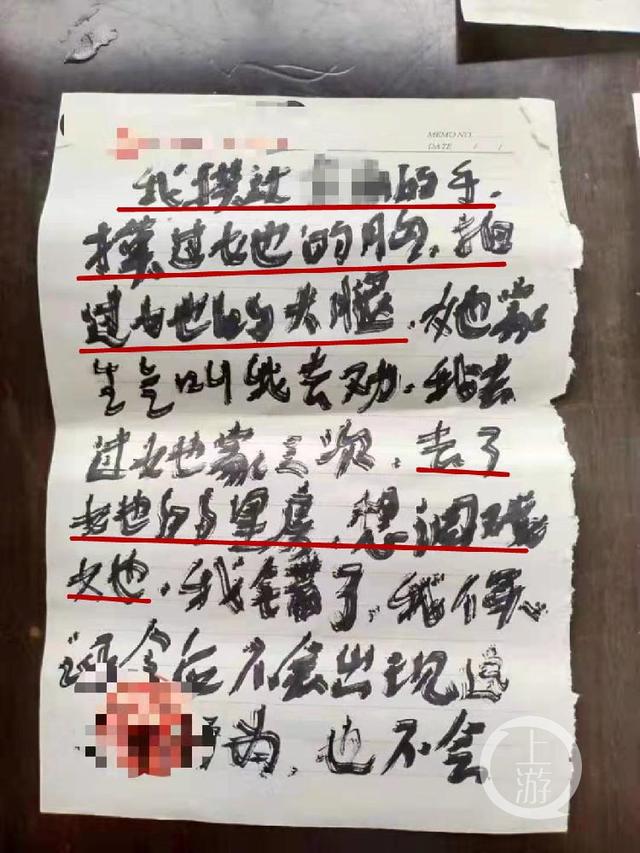 MEMO NO.
DATE / /
我摸过的手,
摸过她的胸,拍
过她的大腿,她家
生气叫我去劝,我去
过她家三次,去了
她的里房,想调戏
她,我错了,我保
证今后不会出现这
为,也不会
上游